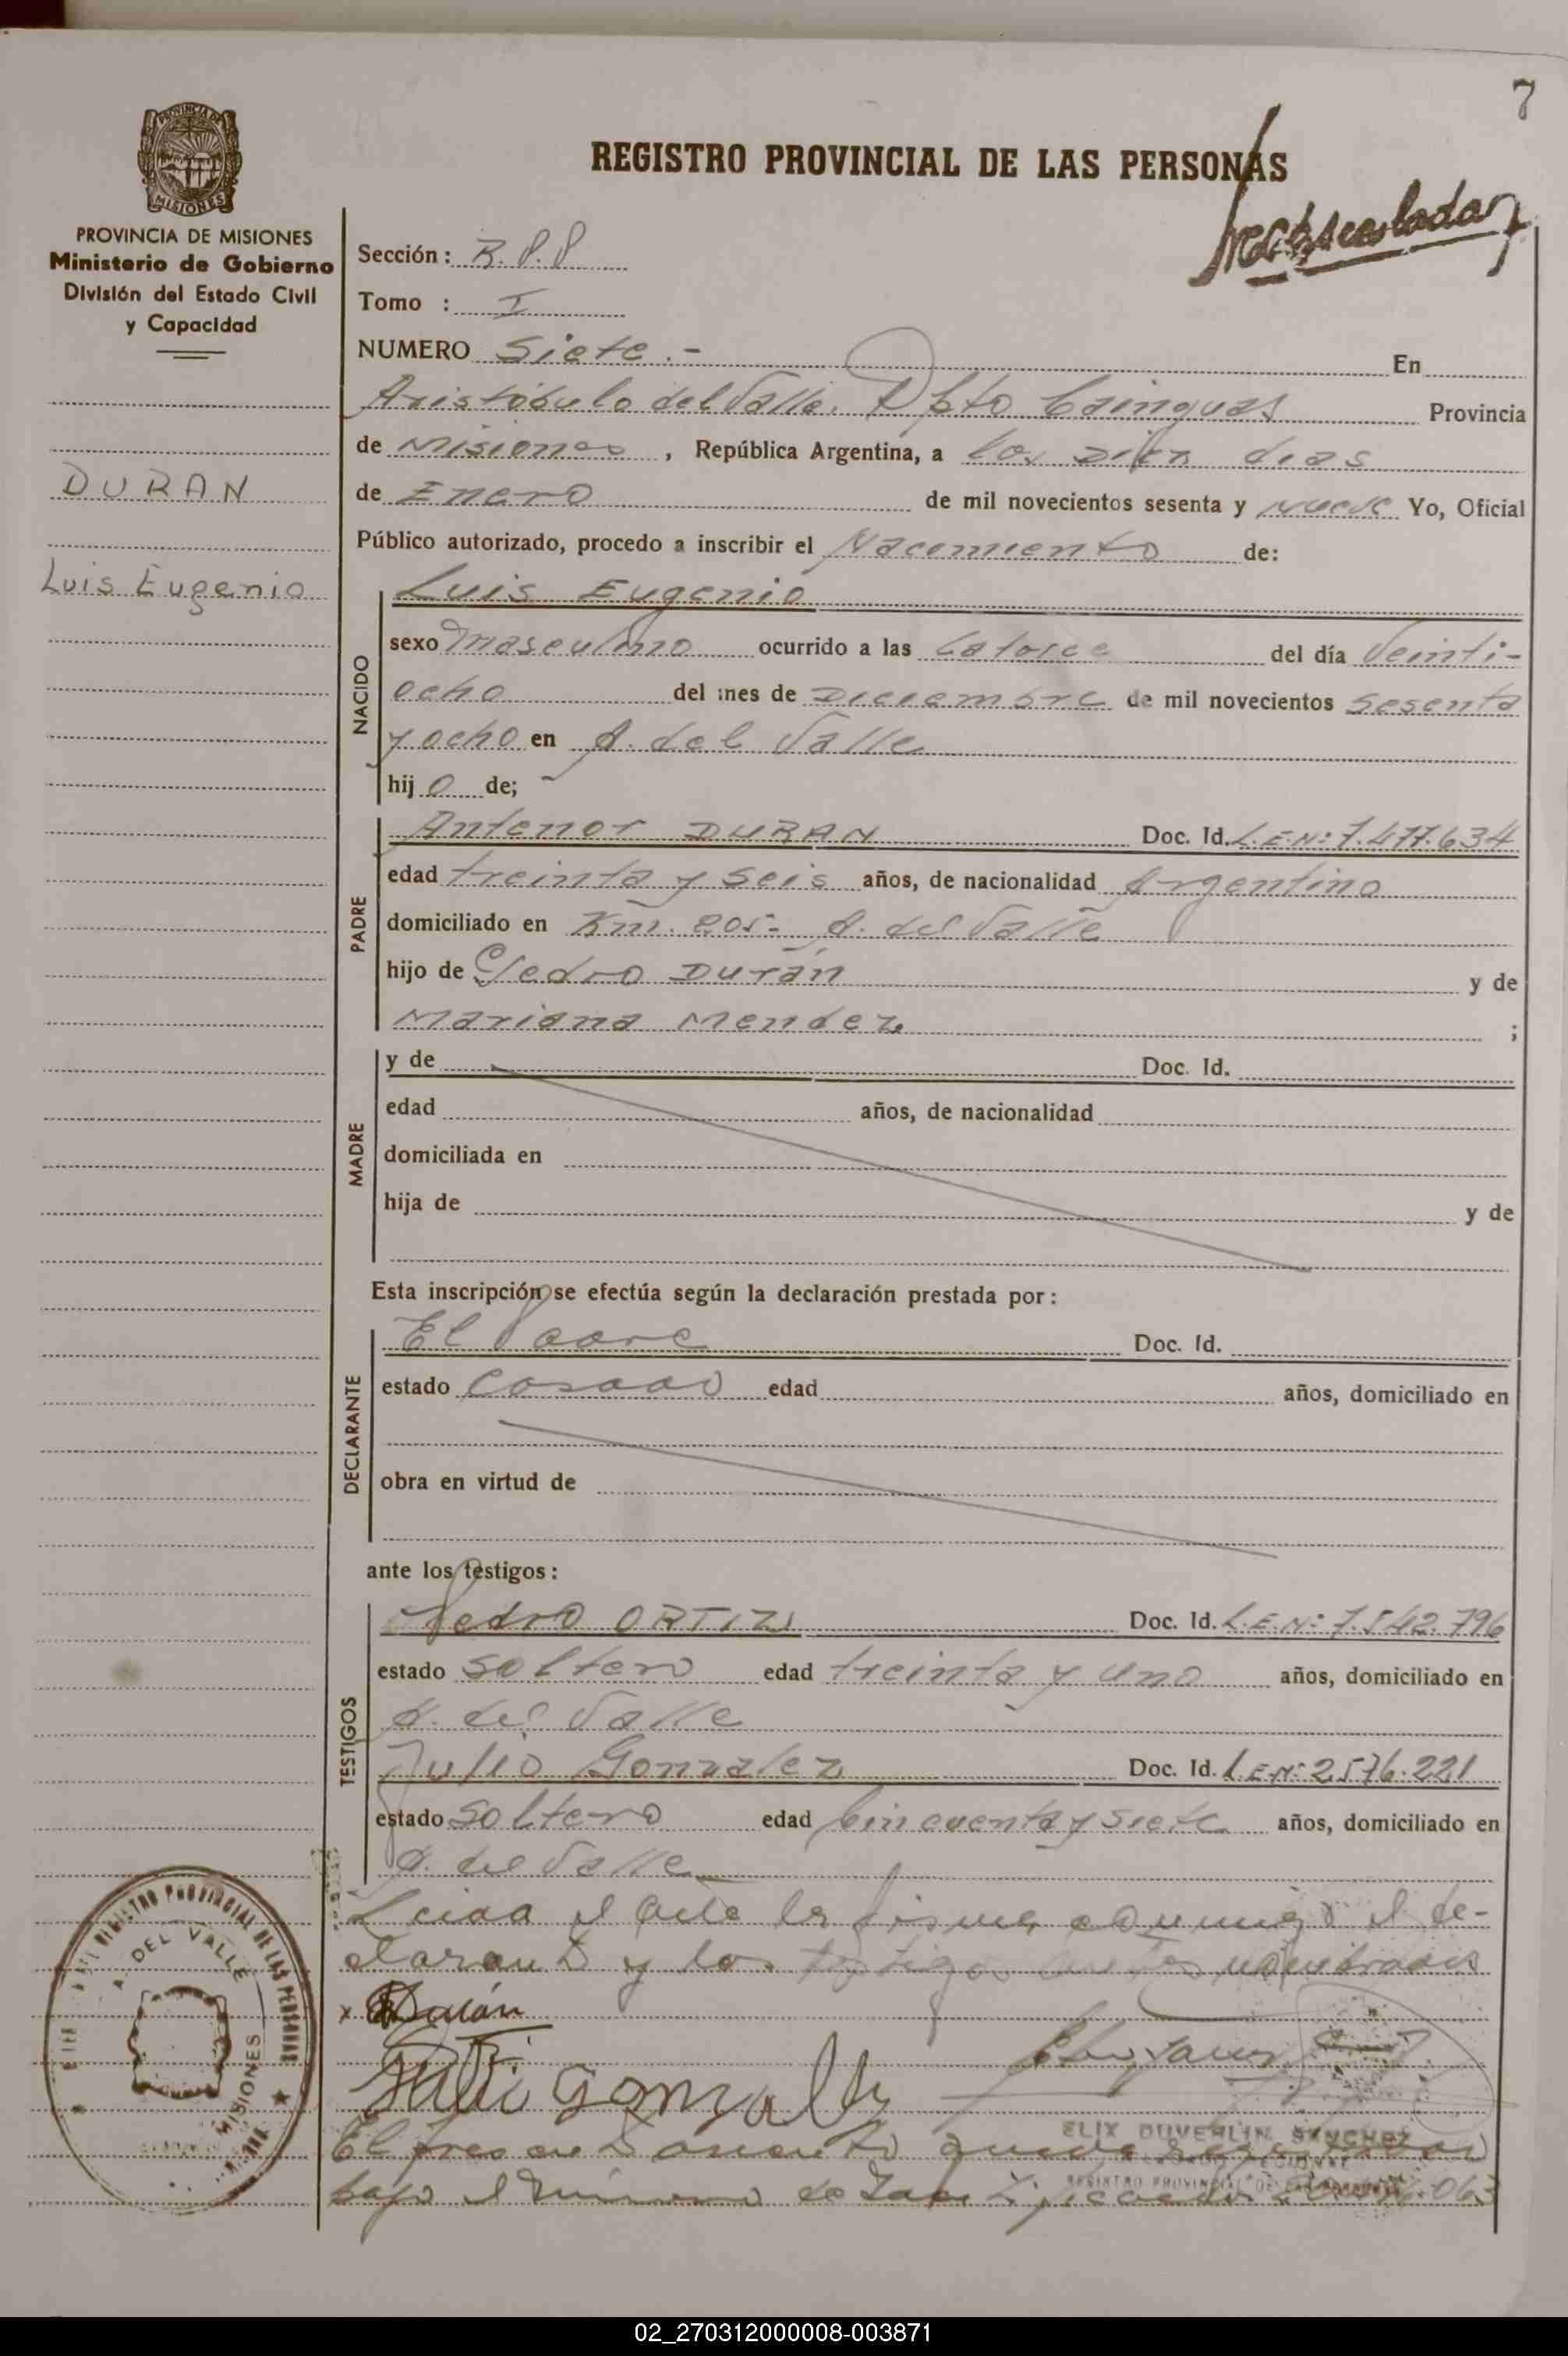 7
REGISTRO PROVINCIAL DE LAS PERSONAS
PROVINCIA DE
MISIONES
PROVINCIA DE MISIONES
Ministerio de Gobierno
División del Estado Civil
y Capacidad
DURAN
Luis Eugenio
Sección: R.P.P
Tomo : I
NUMERO Siete.- En
Aristóbulo del Valle. Dpto Cainguas Provincia
de Misiones, República Argentina, a los Diez dias
de Enero de mil novecientos sesenta y nueve Yo, Oficial
Público autorizado, procedo a inscribir el Nacimiento de:
NACIDO
Luis Eugenio
sexo Masculino ocurrido a las Catorce del día Veinti-
ocho del mes de Diciembre de mil novecientos sesenta
y ocho en A. del Valle
hijo de;
PADRE
Antenor DURAN Doc. Id. L.E.N: 7.477.634
edad treinta y seis años, de nacionalidad Argentino
domiciliado en Km. 205- A. del Valle
hijo de Pedro Durán y de
Mariana Mendez ;
MADRE
y de Doc. Id.
edad años, de nacionalidad
domiciliada en
hija de y de
Esta inscripción se efectúa según la declaración prestada por:
DECLARANTE
El Padre Doc. Id.
estado Casado edad años, domiciliado en
obra en virtud de
ante los testigos:
TESTIGOS
Pedro ORTIZ Doc. Id. L.E.N: 7.542.796
estado soltero edad treinta y uno años, domiciliado en
A. del Valle
Julio Gonzalez Doc. Id. L.E.N: 2.576.221
estado soltero edad Cincuenta y siete años, domiciliado en
A. del Valle
Leida el acta la firma conmigo el de-
clarante y los testigos antes nombrados
x Durán
Gonzalez
ELIX DUVERLIN SANCHEZ
REGISTRO PROVINCIAL DE LAS PERSONAS
El presente asiento queda
bajo el Número de
REGISTRO PROVINCIAL DE LAS PERSONAS
A. DEL VALLE
MISIONES
02_270312000008-003871